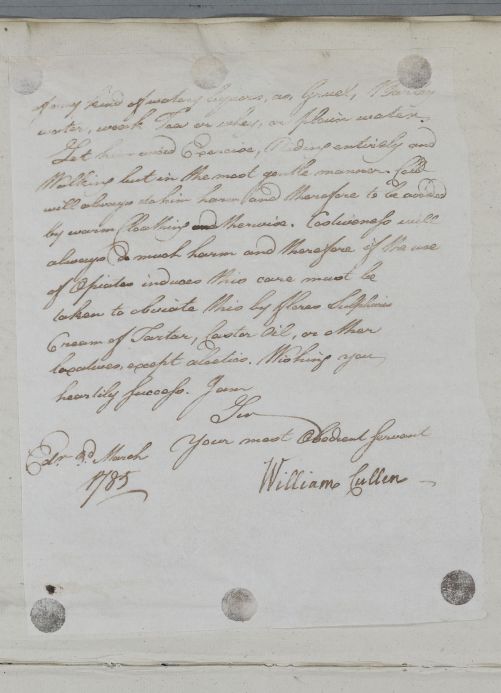 of any kind of watery liquors, as, Gruel, Barley
water, weak Tea or whey, or plain water.
Let him avoid Exercise, Riding entirely and
Walking but in the most gentle manner. Cold
will always do him harm and therefore to be avoided
by warm Cloathing and otherwise. Costiveness will
always do much harm and therefore if the use
of Opiates induces this care must be
taken to obviate this by flores Sulphuris
Cream of Tartar, Castor Oil, or other
laxatives, except aloetics. Wishing you
heartily success. I am
Sir
Your most Obedient Servant
Edr. 3d March
1785
William Cullen